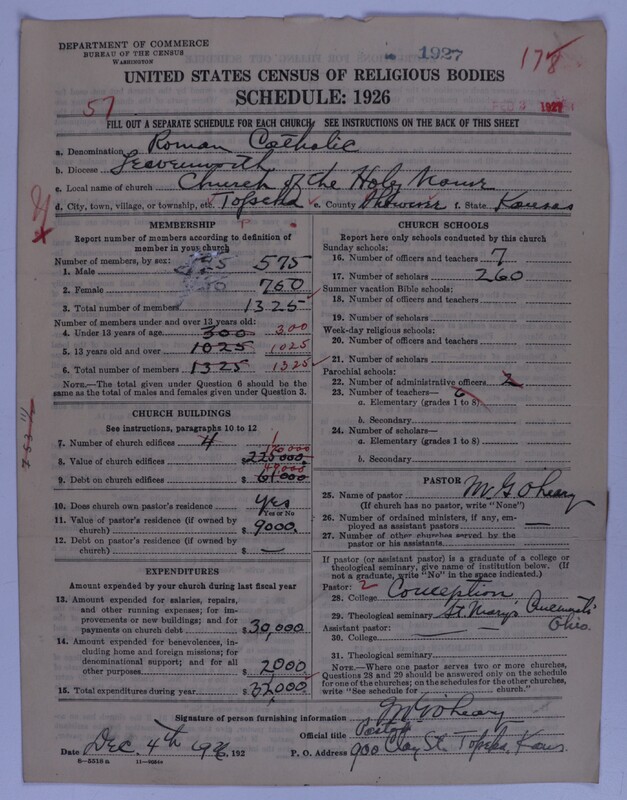 DEPARTMENT OF COMMERCE
BUREAU OF THE CENSUS
WASHINGTON
1927
178
UNITED STATES CENSUS OF RELIGIOUS BODIES
SCHEDULE: 1926
57
FEB 3 1927
FILL OUT A SEPARATE SCHEDULE FOR EACH CHURCH. SEE INSTRUCTIONS ON THE BACK OF THIS SHEET
a. Denomination Roman Catholic
b. Diocese Leavenworth
c. Local name of church Church of the Holy Name
d. City, town, village, or township, etc. Topeka e. County Shawnee f. State Kansas
MEMBERSHIP
Report number of members according to definition of member in your church
Number of members, by sex:
1. Male 575
2. Female 750
3. Total number of members 1325
Number of members under and over 13 years old:
4. Under 13 years of age 300 300
5. 13 years old and over 1025 1025
6. Total number of members 1325 1325
NOTE.—The total given under Question 6 should be the
same as the total of males and females given under Question 3.
CHURCH BUILDINGS
See instructions, paragraphs 10 to 12
7. Number of church edifices 4 1
8. Value of church edifices $ 225000
9. Debt on church edifices $ 61000
10. Does church own pastor's residence yes
Yes or No
11. Value of pastor's residence (if owned by
church) $ 9000.
12. Debt on pastor's residence (if owned by
church) $ —
EXPENDITURES
Amount expended by your church during last fiscal year
13. Amount expended for salaries, repairs,
and other running expenses; for im-
provements or new buildings; and for
payments on church debt $ 30,000
14. Amount expended for benevolences, in-
cluding home and foreign missions; for
denominational support; and for all
other purposes $ 2000
15. Total expenditures during year $ 32,000
CHURCH SCHOOLS
Report here only schools conducted by this church
Sunday schools:
16. Number of officers and teachers 7
17. Number of scholars 260
Summer vacation Bible schools:
18. Number of officers and teachers
19. Number of scholars
Week-day religious schools:
20. Number of officers and teachers
21. Number of scholars
Parochial schools:
22. Number of administrative officers 2
23. Number of teachers— 6
a. Elementary (grades 1 to 8)
b. Secondary
24. Number of scholars—
a. Elementary (grades 1 to 8)
b. Secondary
PASTOR
25. Name of pastor M. G. O'Leary
(If church has no pastor, write "None")
26. Number of ordained ministers, if any, em-
ployed as assistant pastors —
27. Number of other churches served by the
pastor or his assistants
If pastor (or assistant pastor) is a graduate of a college or
theological seminary, give name of institution below. (If
not a graduate, write "No" in the space indicated.)
Pastor: 2
28. College Conception
29. Theological seminary St. Mary's Cincinnati Ohio
Assistant pastor:
30. College —
31. Theological seminary
NOTE.—Where one pastor serves two or more churches,
Questions 28 and 29 should be answered only on the schedule
for one of the churches; on the schedules for the other churches,
write "See schedule for church."
Signature of person furnishing information M G O'Leary
Official title Pastor
Date Dec. 4th 1926, 192 P. O. Address 900 Clay St. Topeka, Kans.
8—5518 a 11—9084